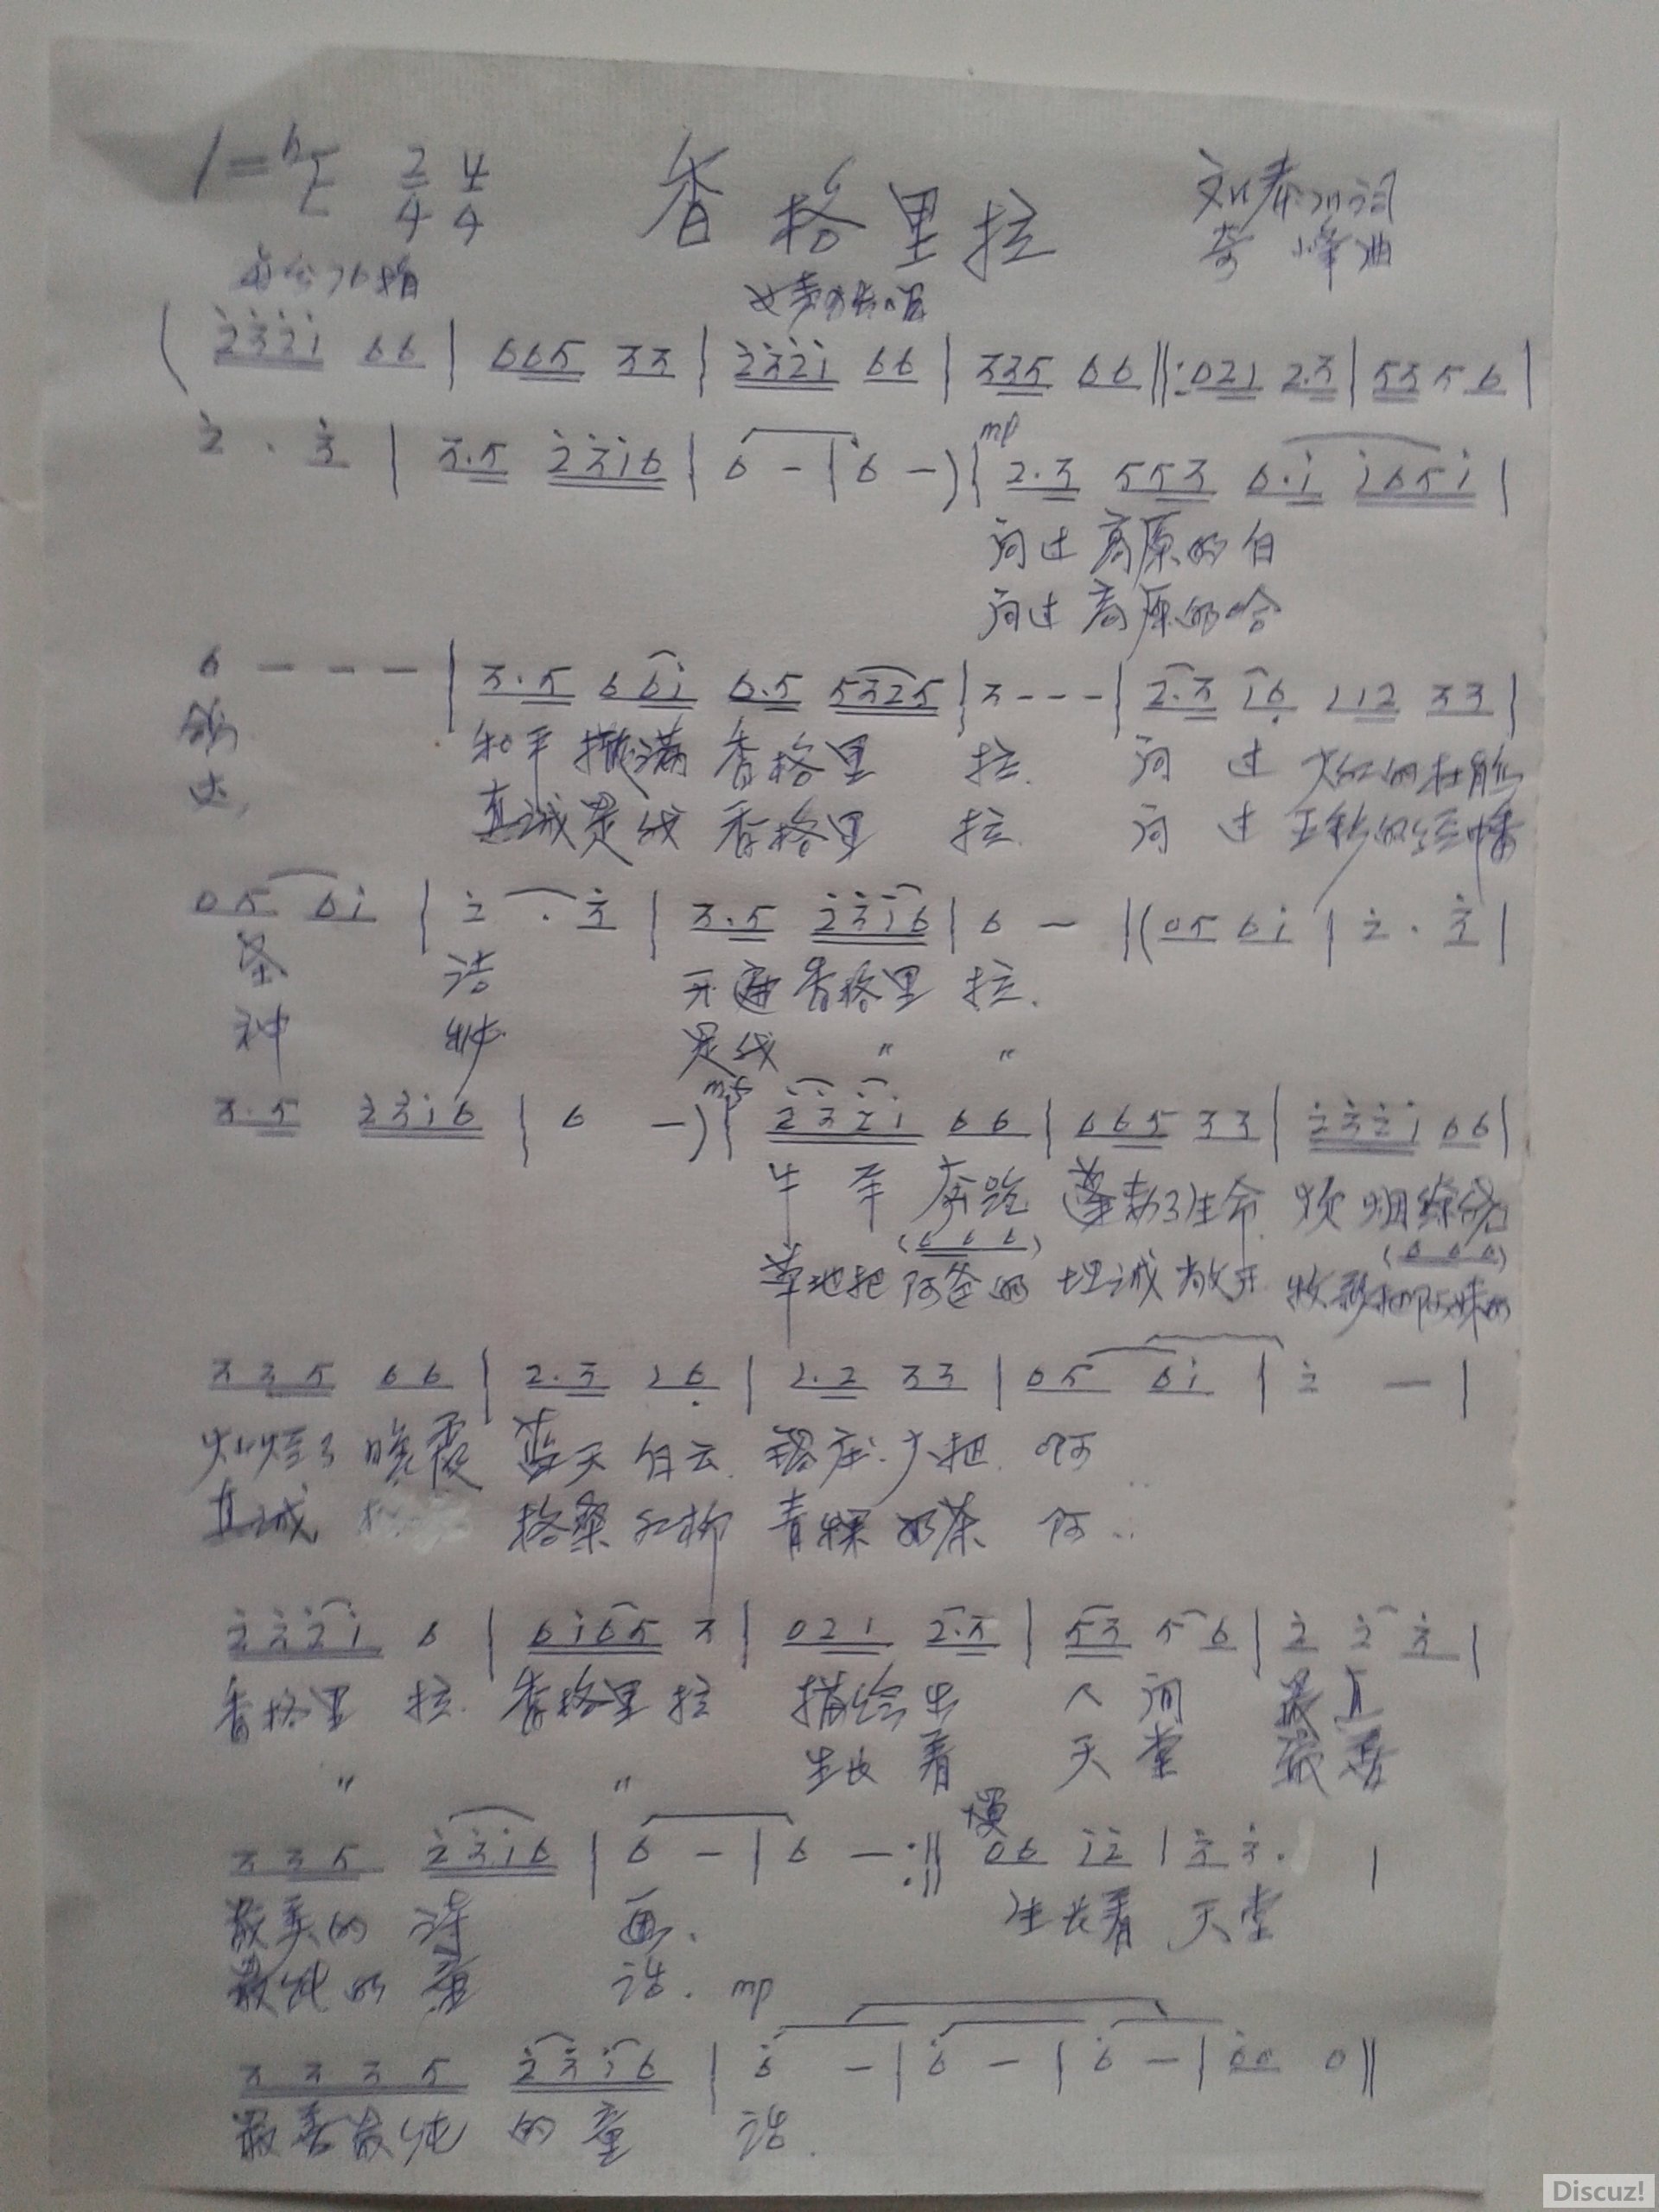 1=♭E 2/4 4/4 香格里拉 词
峰 曲
女声
( 2̇3̇2̇1̇ 66 | 665 33 | 2̇3̇2̇1̇ 66 | 335 66 ‖: 021 2.3 | 53 5 6 |
2̇ . 3̇ | 3.5 2̇3̇1̇6 | 6 - | 6 - ) | mp 2.3 553 6.1̇ 1̇651̇ |
问过高原的白
问过高原的哈
6 - - - | 3.5 661̇ 6.5 5325 | 3 - - - | 2.3 16̣ 112 33 |
鸽 和平撒满香格里 拉. 问 过 火红的杜鹃
达, 真诚是我香格里 拉. 问 过 的经幡
05 61̇ | 2̇ . 3̇ | 3.5 2̇3̇1̇6 | 6 - | (05 61̇ | 2̇ . 3̇ |
圣 洁 开遍香格里 拉.
神 是我 〃 〃
3.5 2̇3̇1̇6 | 6 - ) | mf 2̇3̇2̇1̇ 66 | 665 33 | 2̇3̇2̇1̇ 66 |
牛 羊 奔跑 蓬勃了生命 炊烟缭绕
(6 6 6) (6 6 6)
草地把阿爸的 坦诚敞开 牧歌把阿妹的
335 66 | 2.3 16̣ | 1.2 33 | 05 61̇ | 2̇ - |
灿烂了 晚霞 蓝天白云 锅庄 啊
真诚 格桑红柳 青稞奶茶 啊..
2̇2̇2̇1̇ 6 | 61̇65 3 | 021 2.3 | 53 5 6 | 2̇ 2̇ 3̇ |
香格里 拉. 香格里拉 描绘出 人 间 最真
〃 〃 生长着 天堂 最善
335 2̇3̇1̇6 | 6 - | 6 - :‖ 慢 06 1̇2̇ | 3̇ 3̇. |
最美的 诗 画. 生长着 天堂
最纯的 童 话. mp
3 3 3 5 2̇3̇1̇6 | 6̇ - | 6̇ - | 6̇ - | 6̇0 0 ‖
最善最纯 的童 话.
Discuz!